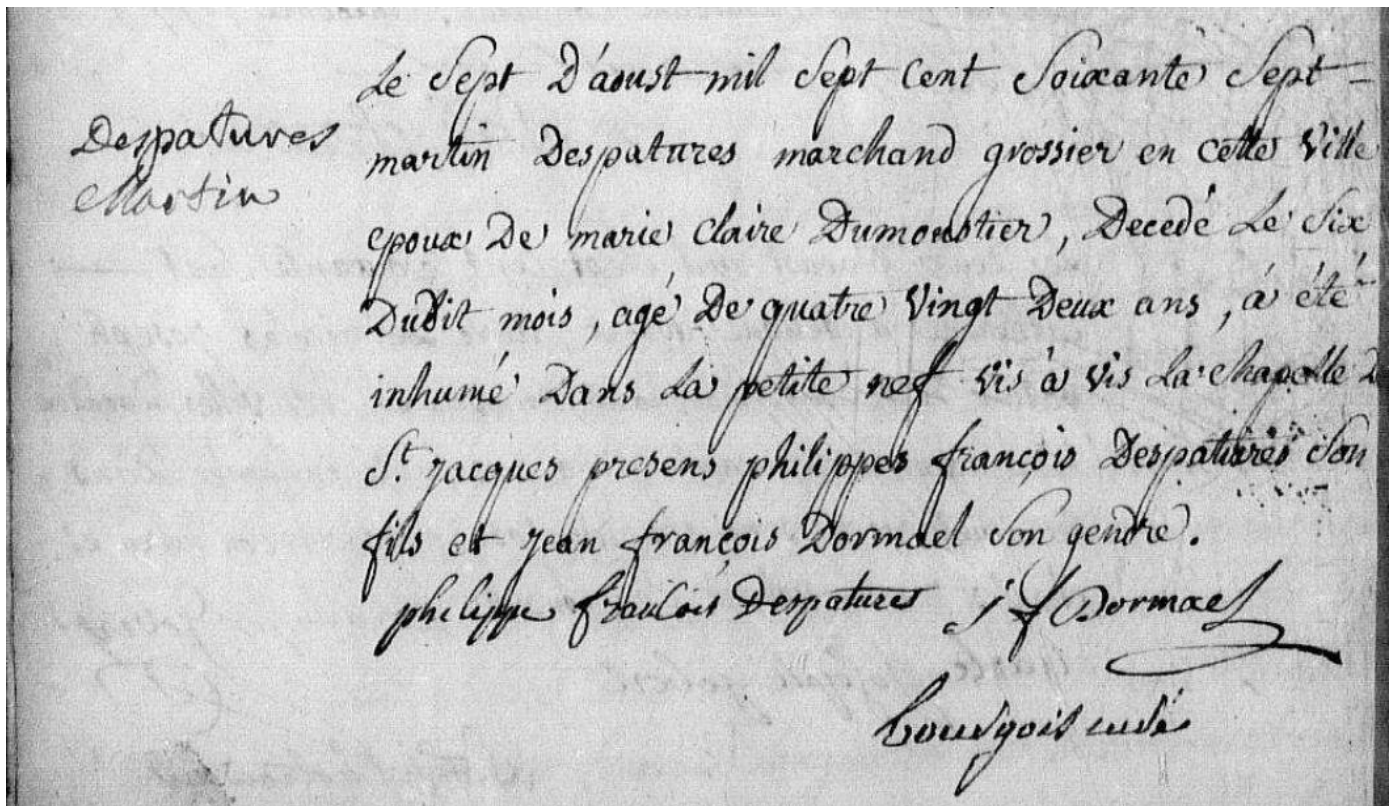 Le Sept D'aoust mil Sept Cent Soixante Sept =
Despatures
Martin
martin Despatures marchand grossier en cette Ville
epoux De marie Claire Dumoustier, Decedé Le Six
Dudit mois, agé De quatre Vingt Deux ans, à été
inhumé Dans La petite nef vis à vis La chapelle D
St. Jacques presens philippes françois Despatures Son
fils et Jean françois Dormael Son gendre.
philippe francois Despatures j f Dormael
bourgois curé